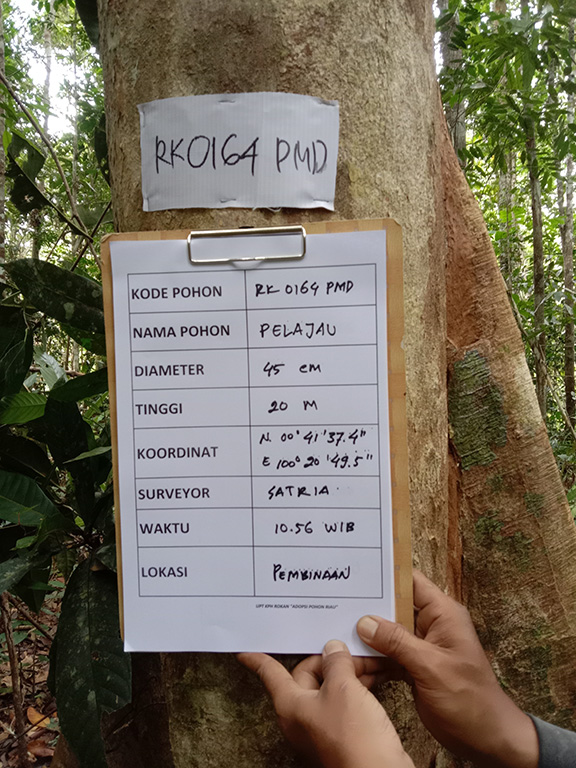 RK0164 PMD
KODE POHON RK 0164 PMD
NAMA POHON PELAJAU
DIAMETER 45 cm
TINGGI 20 M
KOORDINAT N. 00° 41' 37.4"
E 100° 20' 49.5"
SURVEYOR SATRIA.
WAKTU 10.56 WIB
LOKASI PEMBINAAN
UPT KPH ROKAN "ADOPSI POHON RIAU"